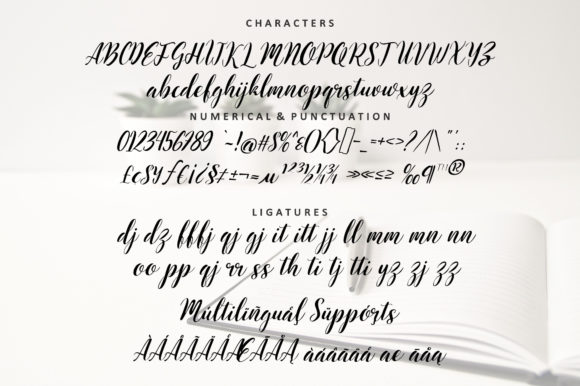 CHARACTERS
ABCDEFGHIJKLMNOPQRSTUVWXYZ
abcdefghijklmnopqrstuvwxyz
NUMERICAL & PUNCTUATION
0123456789 `~!@#$%^&(){}[]-_=+<>?/|\"':;
£¢$y f€i¿§±¬=µ¹²³½¼¾ »«≤≥ ‰¶™®
LIGATURES
dj dz fffj aj gj it itt jj ll mm mn nn
oo pp qj rr ss th ti tj tti yz zj zz
Múltilíñguáļ Süppóŗţs
ÀÁÂÃÄÅÆÃĀĄ àáâãäå ae āåą